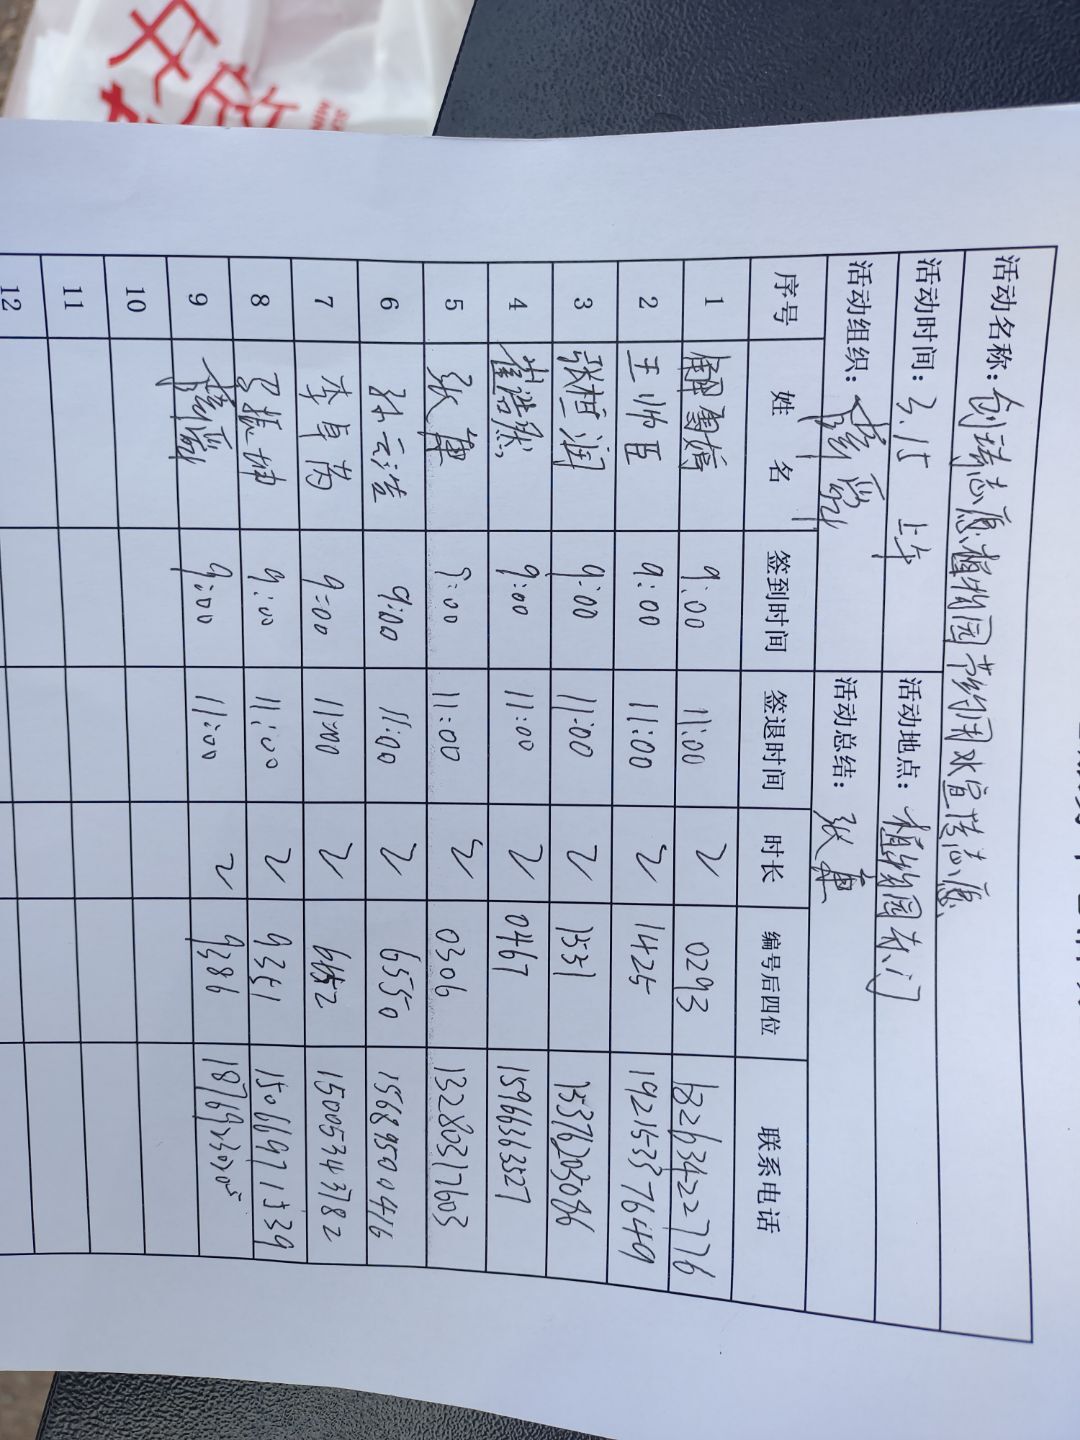 开放
活动名称：创瑞志愿植物园节约用水宣传志愿
活动时间：3.15 上午 活动地点：植物园东门
活动组织： 活动总结：张
序号 姓名 签到时间 签退时间 时长 编号后四位 联系电话
1 9:00 11:00 2 0293 18263422776
2 王帅臣 9:00 11:00 2 1425 19215337649
3 张桓润 9:00 11:00 2 1531 15376203086
4 崔浩然 9:00 11:00 2 0467 15966363527
5 张 9:00 11:00 2 0306 13280317603
6 孙云浩 9:00 11:00 2 6550 15689500416
7 李卓芮 9:00 11:00 2 15005343782
8 9:00 11:00 2 9351 15066971539
9 9:00 11:00 2 9386
10
11
12